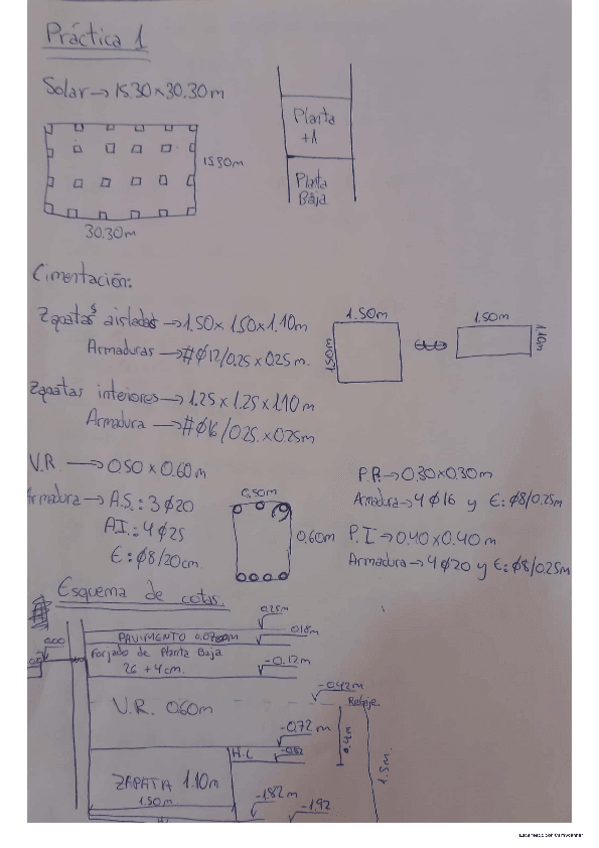 Práctica 1
Solar → 15.30 x 30.30 m
Planta
+1
Planta
Baja
15.30m
30.30m
Cimentación:
Zapatas aisladas → 1.50 x 1.50 x 1.10m
Armaduras → # Ø12/0.25 x 0.25 m.
1.50m
1.50m
1.50m
1.10m
Zapatas interiores → 1.25 x 1.25 x 1.10 m
Armadura → # Ø16 / 0.25 x 0.25m
V.R. → 0.50 x 0.60m
Armadura → A.S.: 3 Ø20
A.I.: 4 Ø25
E: Ø8/20cm.
0.50m
0.60m
P.R. → 0.30 x 0.30m
Armadura → 4 Ø16 y E: Ø8/0.25m
P.I → 0.40 x 0.40 m
Armadura → 4 Ø20 y E: Ø8/0.25m
Esquema de cotas.
0.25m
0.18m
0.00
PAVIMENTO 0.07m
Forjado de Planta Baja
26 + 4cm.
-0.12m
V.R. 0.60m
-0.42m
Rebaje.
-0.72 m
0.4m
H.L
-0.82
1.5m.
ZAPATA 1.10m
1.50m
-1.82m
-1.92